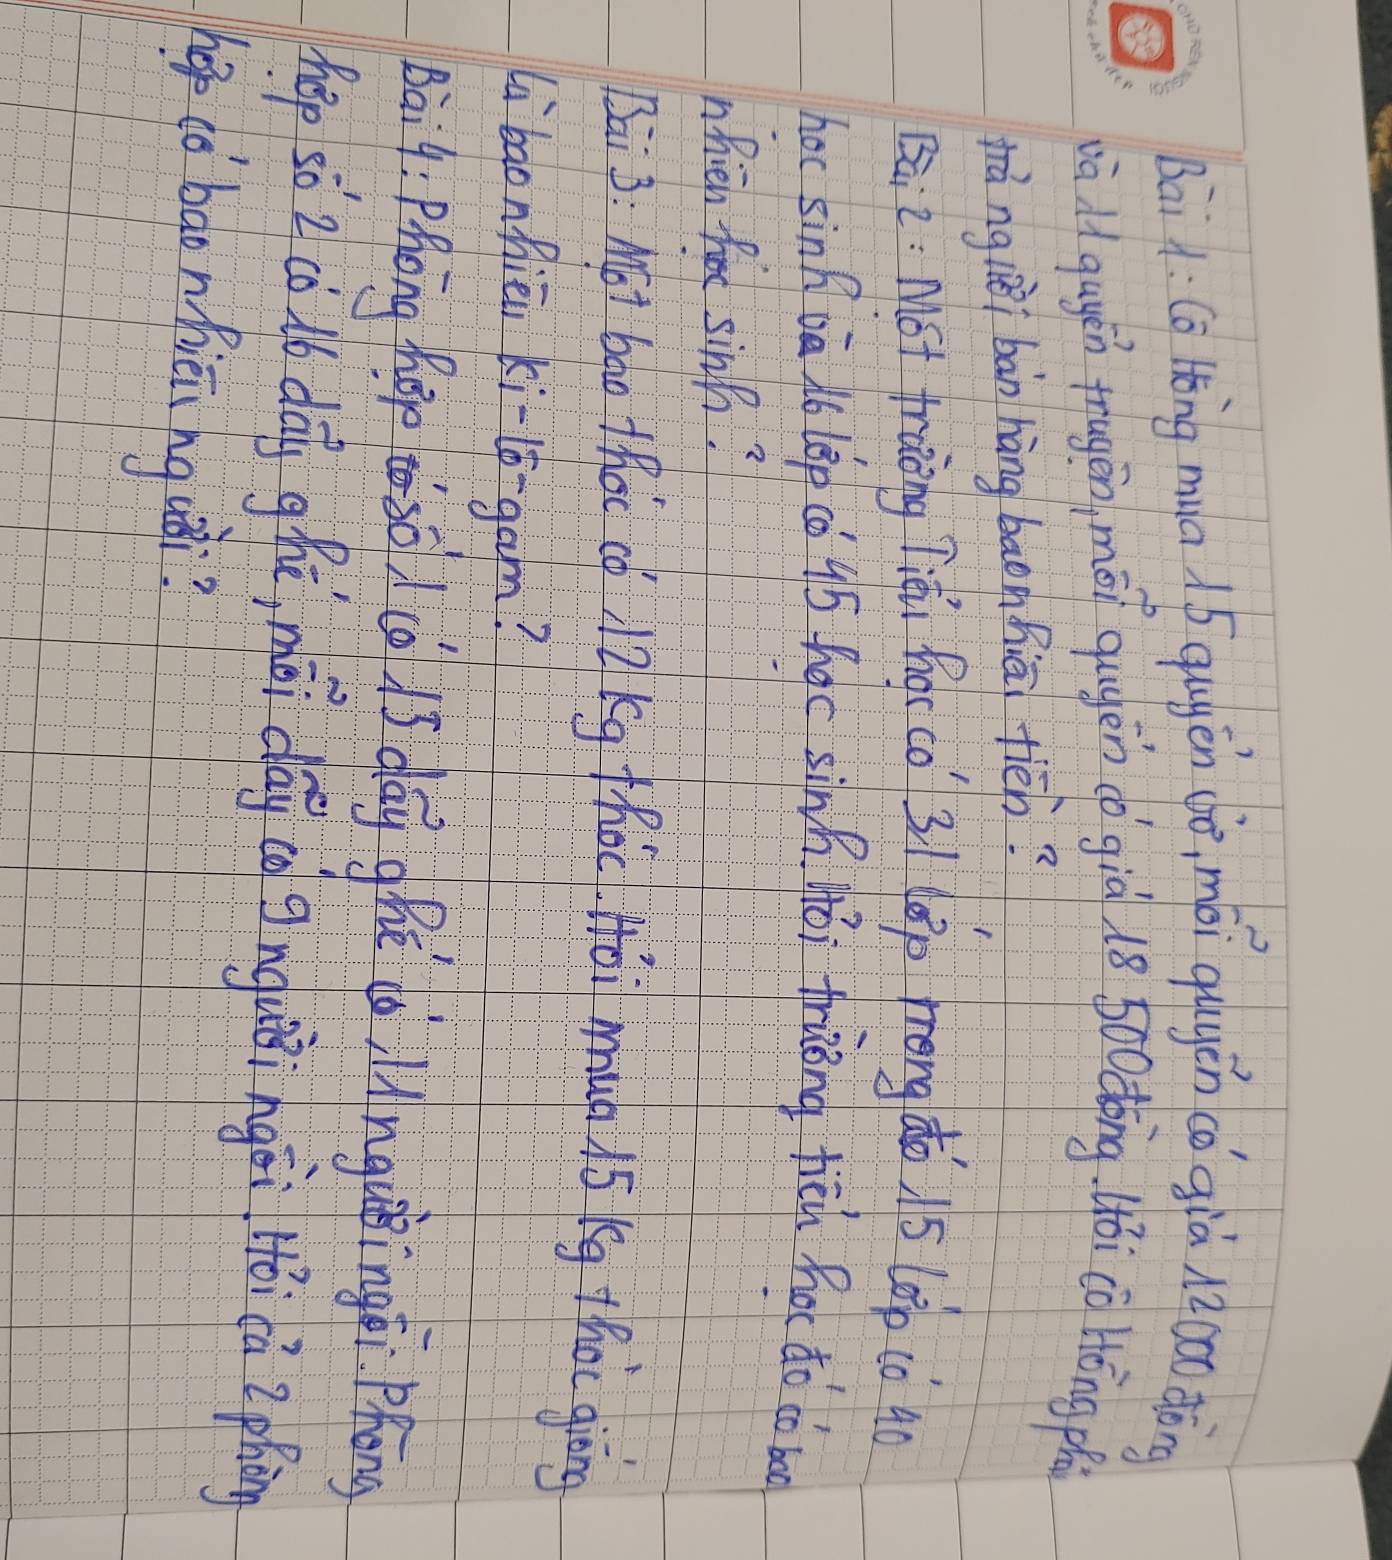 Bài 1: Cô Hồng mua 15 quyển vở, mỗi quyển có giá 12000 đồng
và 11 quyển truyện, mỗi quyển có giá 18 500 đồng. Hỏi cô Hồng phải
trả người bán hàng bao nhiêu tiền?
Bài 2: Một trường Tiểu học có 31 lớp trong đó 15 lớp có 40
học sinh và 16 lớp có 45 học sinh. Hỏi trường tiểu học đó có bao
nhiêu học sinh?
Bài 3: Một bao thóc có 12 kg thóc. Hỏi mua 15 kg thóc giống
là bao nhiêu ki-lô-gam?
Bài 4: Phòng họp số 1 có 15 dãy ghế có 11 người ngồi. Phòng
họp số 2 có 16 dãy ghế, mỗi dãy có 9 người ngồi. Hỏi cả 2 phòng
họp có bao nhiêu người?